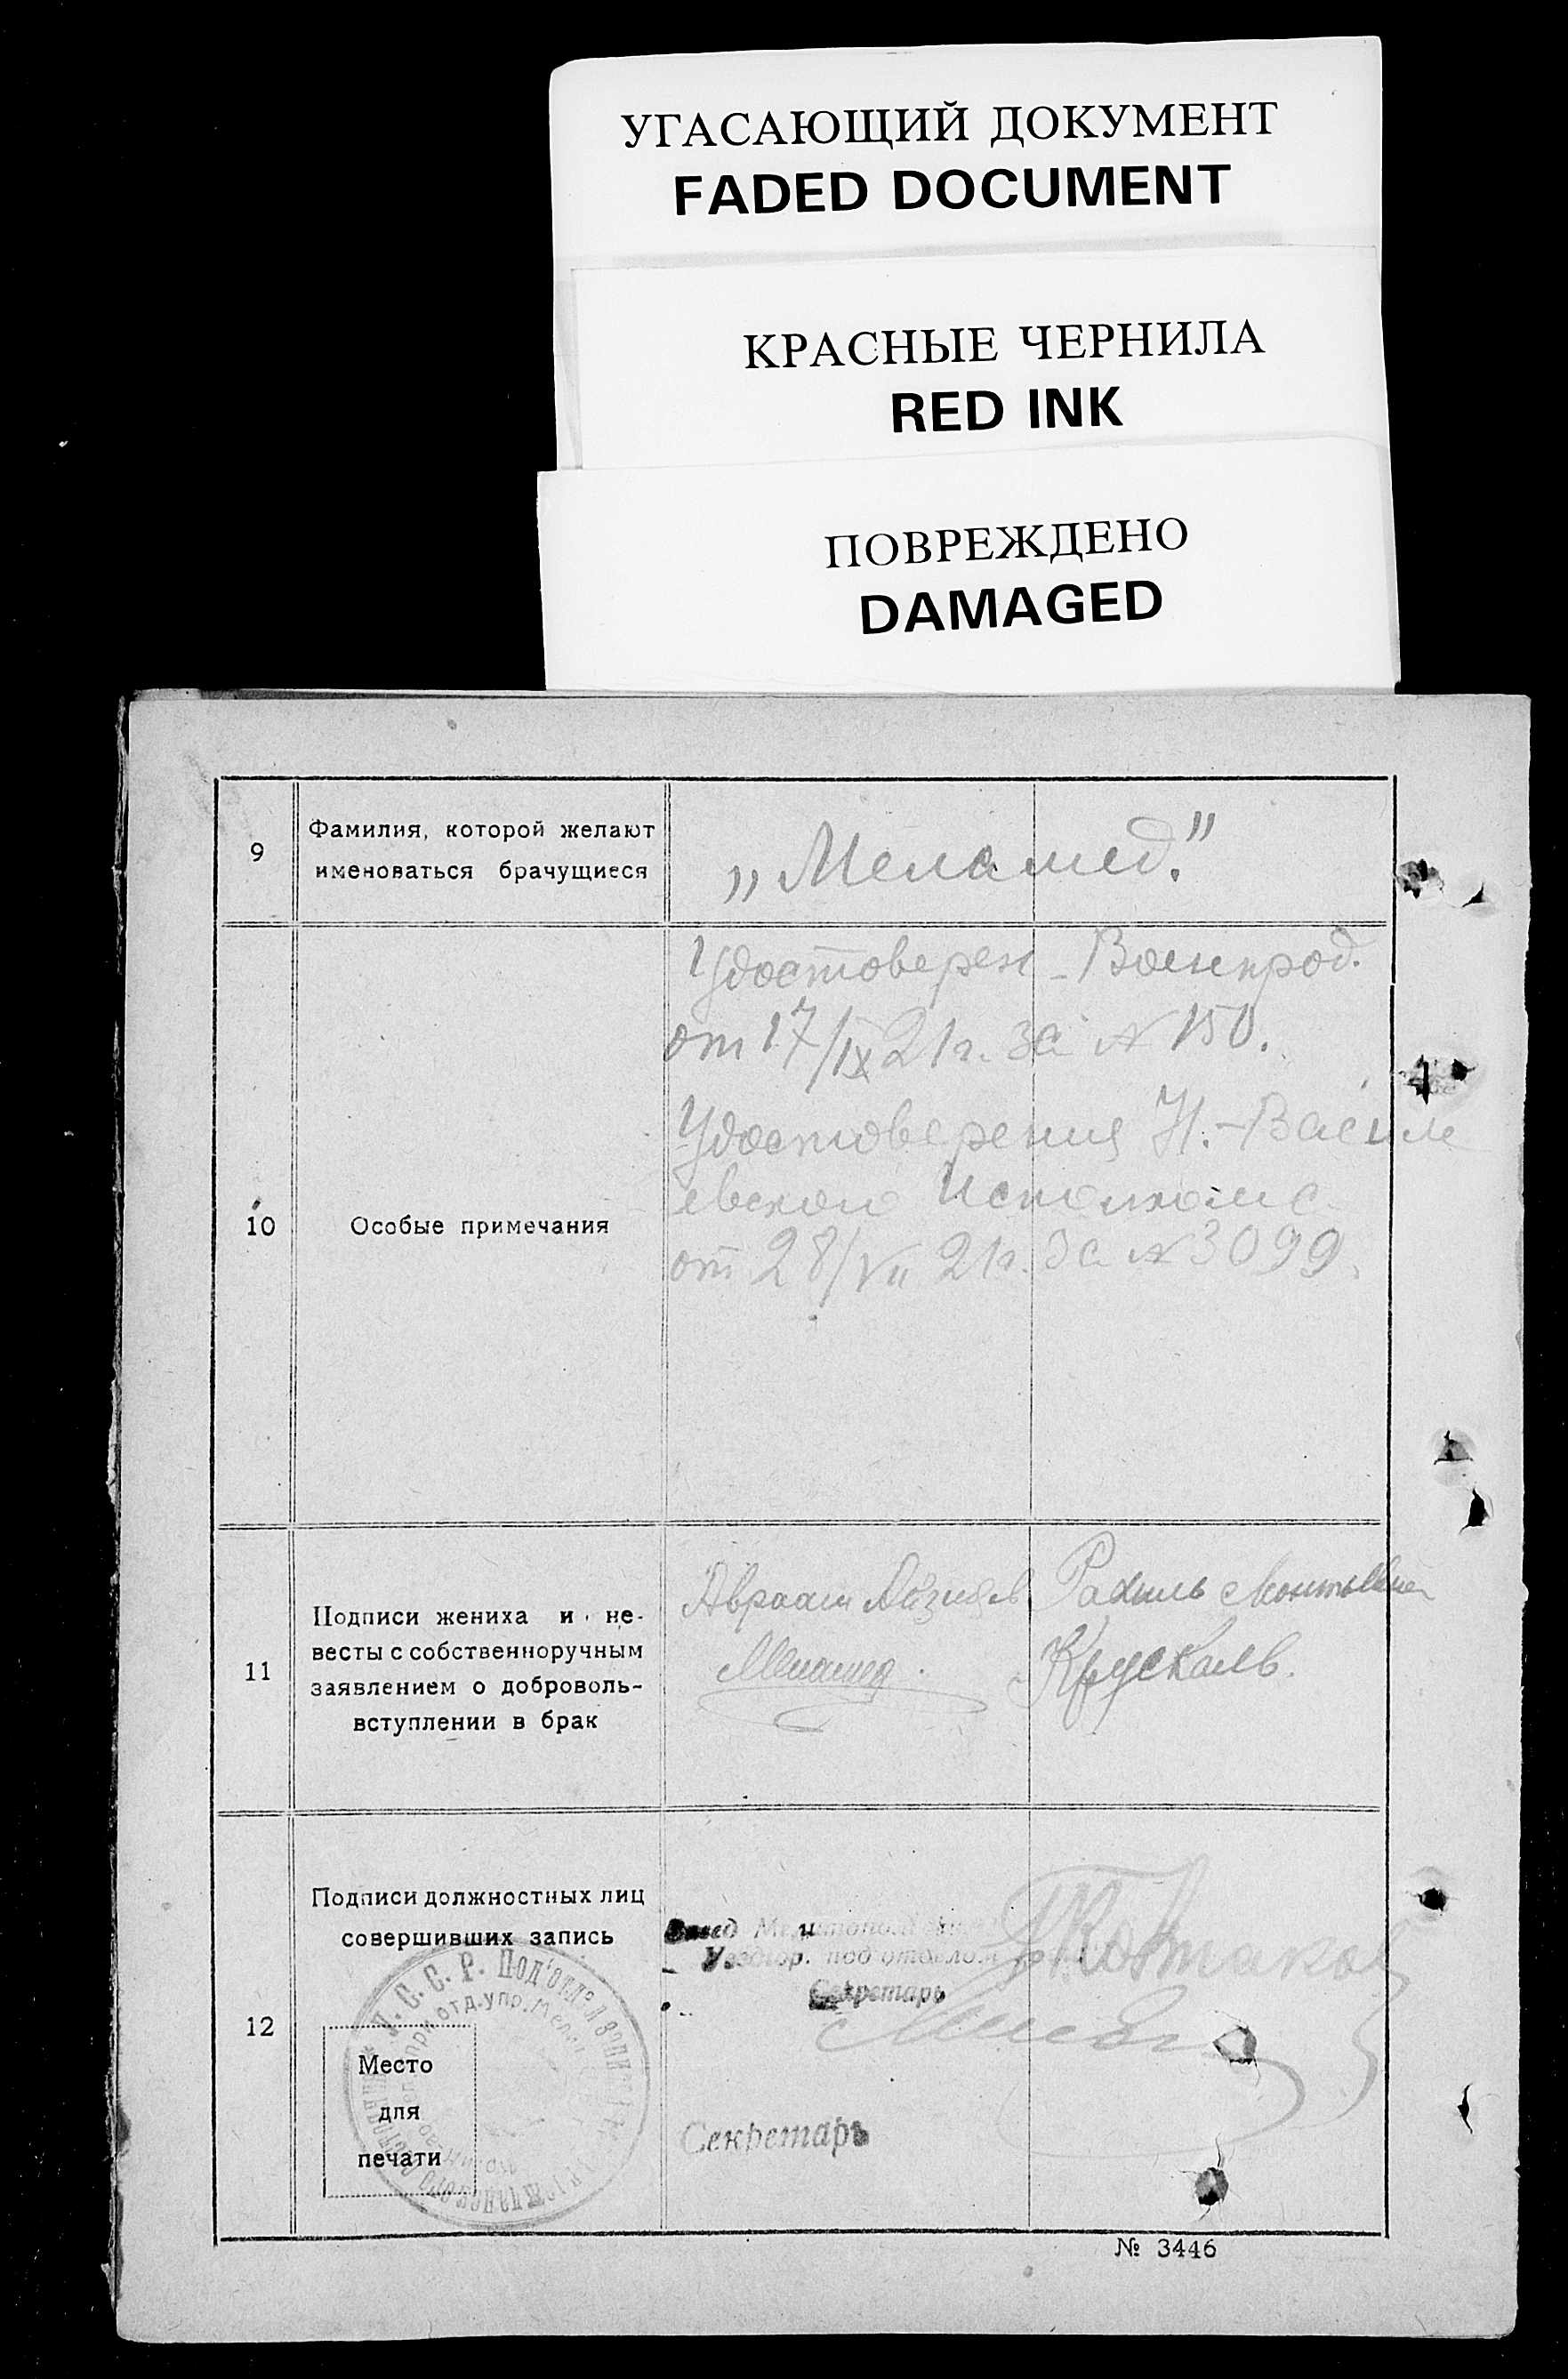 УГАСАЮЩИЙ ДОКУМЕНТ
FADED DOCUMENT
КРАСНЫЕ ЧЕРНИЛА
RED INK
ПОВРЕЖДЕНО
DAMAGED
9
Фамилия, которой желают
именоваться брачущиеся
„Меламед."
10
Особые примечания
Удостоверен Военпрод.
от 17/IX 21 г. за № 150.
Удостоверения Н.-Василе
евского Исполкома
от 28/VII 21 г. за № 3099.
11
Подписи жениха и не-
весты с собственноручным
заявлением о доброволь-
вступлении в брак
Авраам
Меламед.
Рахиль
Крускаль.
12
Подписи должностных лиц
совершивших запись
Место
для
печати
У. С. С. Р. Под'отдел
при отд. упр.
Завед
под отделом
Секретарь
Секретарь
№ 3446